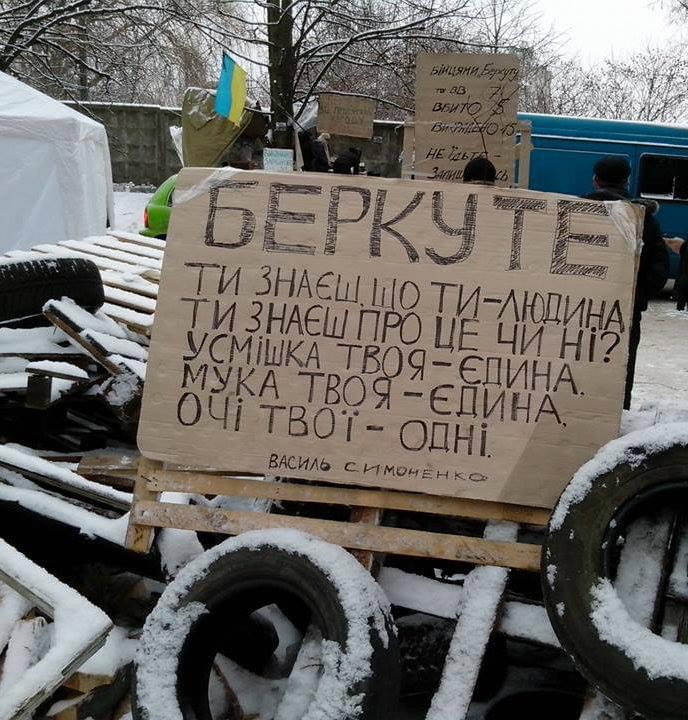 Бійцями, Беркуту
та ВВ
ВБИТО
НЕ ЇДЬТЕ
БЕРКУТЕ
ТИ ЗНАЄШ, ЩО ТИ-ЛЮДИНА
ТИ ЗНАЄШ ПРО ЦЕ ЧИ НІ?
УСМІШКА ТВОЯ-ЄДИНА.
МУКА ТВОЯ-ЄДИНА.
ОЧІ ТВОЇ- ОДНІ.
ВАСИЛЬ СИМОНЕНКО